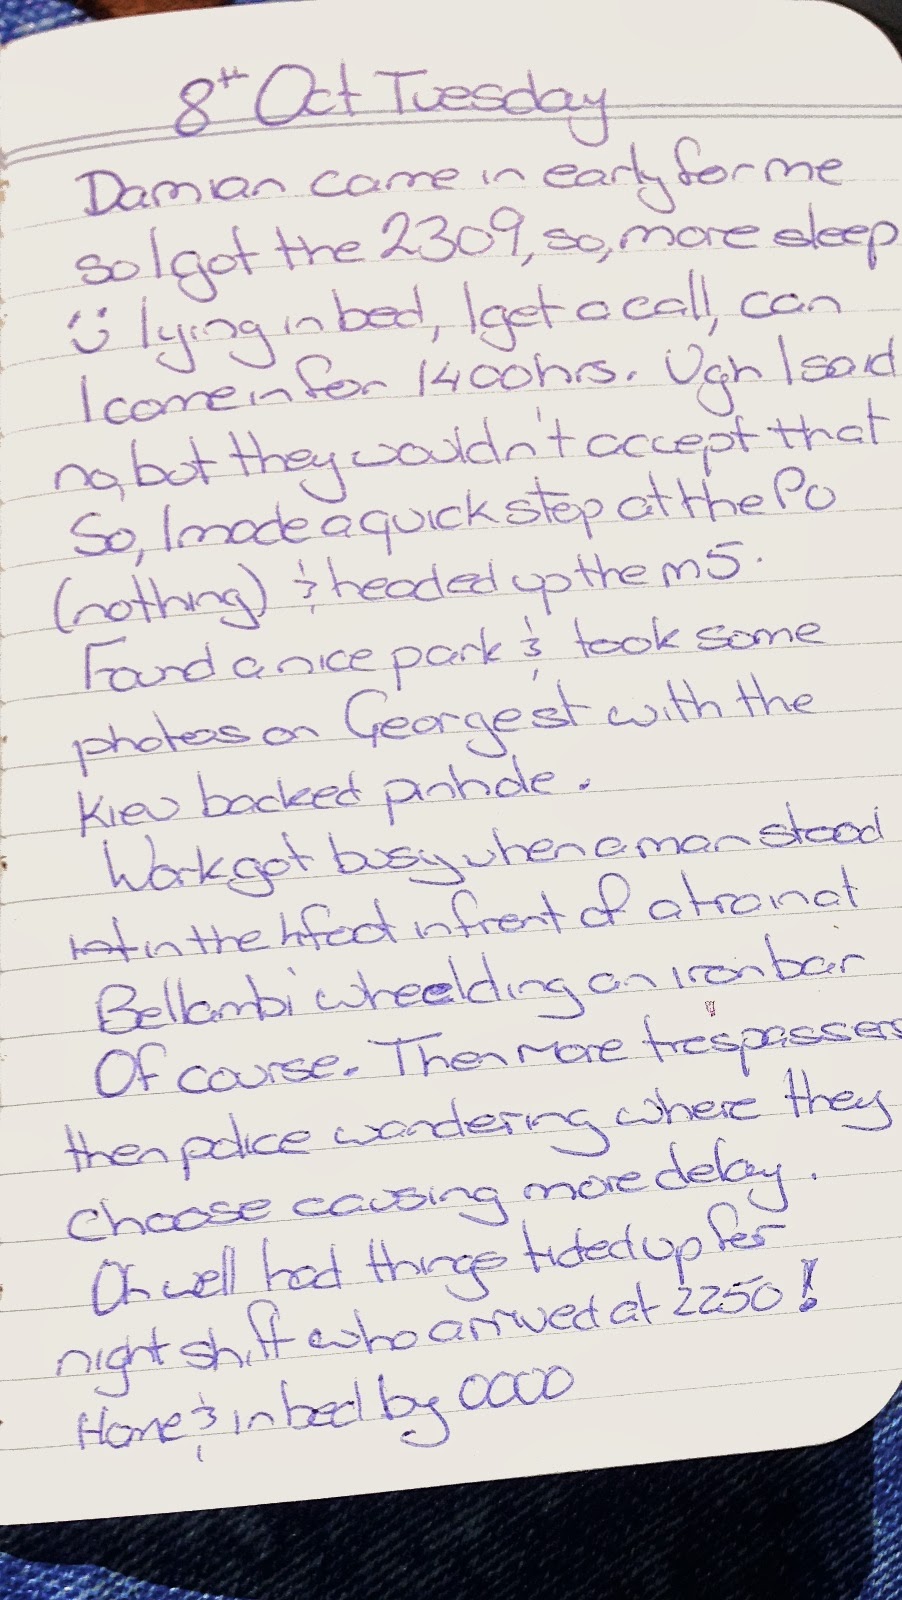 8th Oct Tuesday
Damian came in early for me
so I got the 2309, so, more sleep
Ü lying in bed, I get a call, can
I come in for 1400hrs. Ugh I said
no, but they wouldn't accept that
So, I made a quick step at the PO
(nothing) & headed up the m5.
Found a nice park & took some
photos on George st with the
Kiev backed pinhole.
Work got busy when a man stood
in the 4foot infront of a train at
Bellambi wheelding an iron bar
Of course. Then more trespassers
then police wandering where they
choose causing more delay.
Oh well had things tidied up for
night shift who arrived at 2250!
Home & in bed by 0000